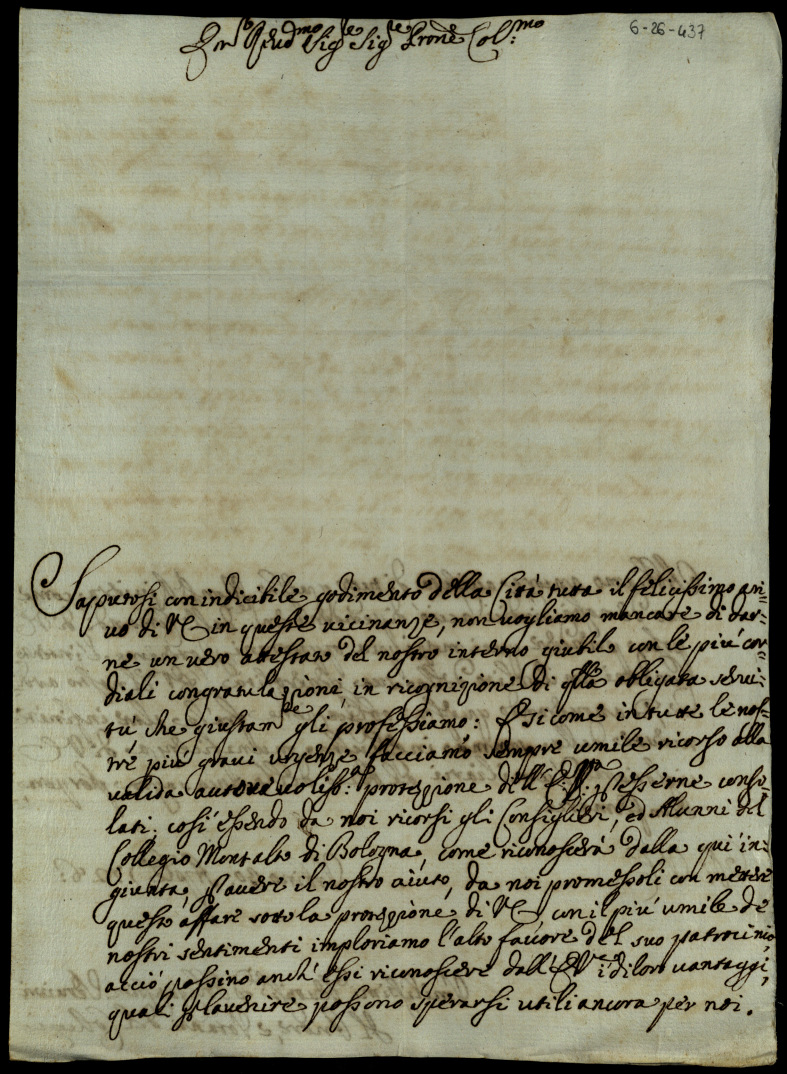 6-26-437
Em.o Reud.mo Sig.re Sig.re Prone Col.mo
Saputosi con indicibile godimento della Città tutta il felicissimo arri=
uo di VE in queste uicinanze, non uogliamo mancare di dar=
ne un uero attestato del nostro interno giubilo con le più cor=
diali congratulazzioni, in ricognizione di qlla obligata serui=
tù che giustam.te gli professiamo: E si come in tutte le nos=
tre più graui urgenze facciamo sempre umile ricorso alla
ualida autoreuoliss.a protezzione dell' p esserne conso=
lati; così essendo da noi ricorsi gli Consiglieri, ed Alunni del
Collegio Montalto di Bologna, come riconoscerà dalla qui in=
giunta, p auere il nostro aiuto, da noi promessoli con mettere
questo affare sotto la protezzione di VE, con il più umile de
nostri sentimenti imploriamo l'alto fauore del suo patrocinio,
acciò possino anch' essi riconoscere dall' EV i di loro uantaggi,
quali p l'auenire possono sperarsi utili ancora per noi.